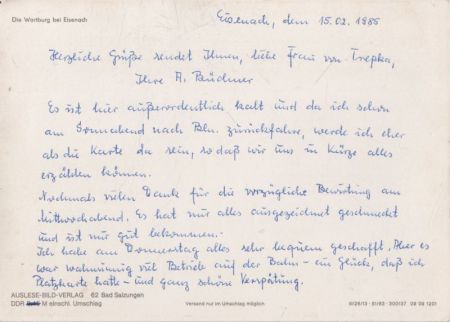 Die Wartburg bei Eisenach
Eisenach, dem 15.02.1985
Herzliche Grüße sendet Ihnen, liebe Frau von Trepka,
Ihre A. Büchner
Es ist hier außerordentlich kalt und da ich schon
am Sonnabend nach Bln. zurückfahre, werde ich eher
als die Karte da sein, so daß wir uns in Kürze alles
erzählen können.
Nochmals vielen Dank für die vorzügliche Bewirtung am
Mittwochabend. Es hat mir alles ausgezeichnet geschmeckt
und ist mir gut bekommen.
Ich habe am Donnerstag alles sehr bequem geschafft. Aber es
war wahnsinnig viel Betrieb auf der Bahn - ein Glück, daß ich
Platzkarte hatte - und ganz schöne Verspätung.
AUSLESE-BILD-VERLAG 62 Bad Salzungen
DDR M einschl. Umschlag
Versand nur im Umschlag möglich